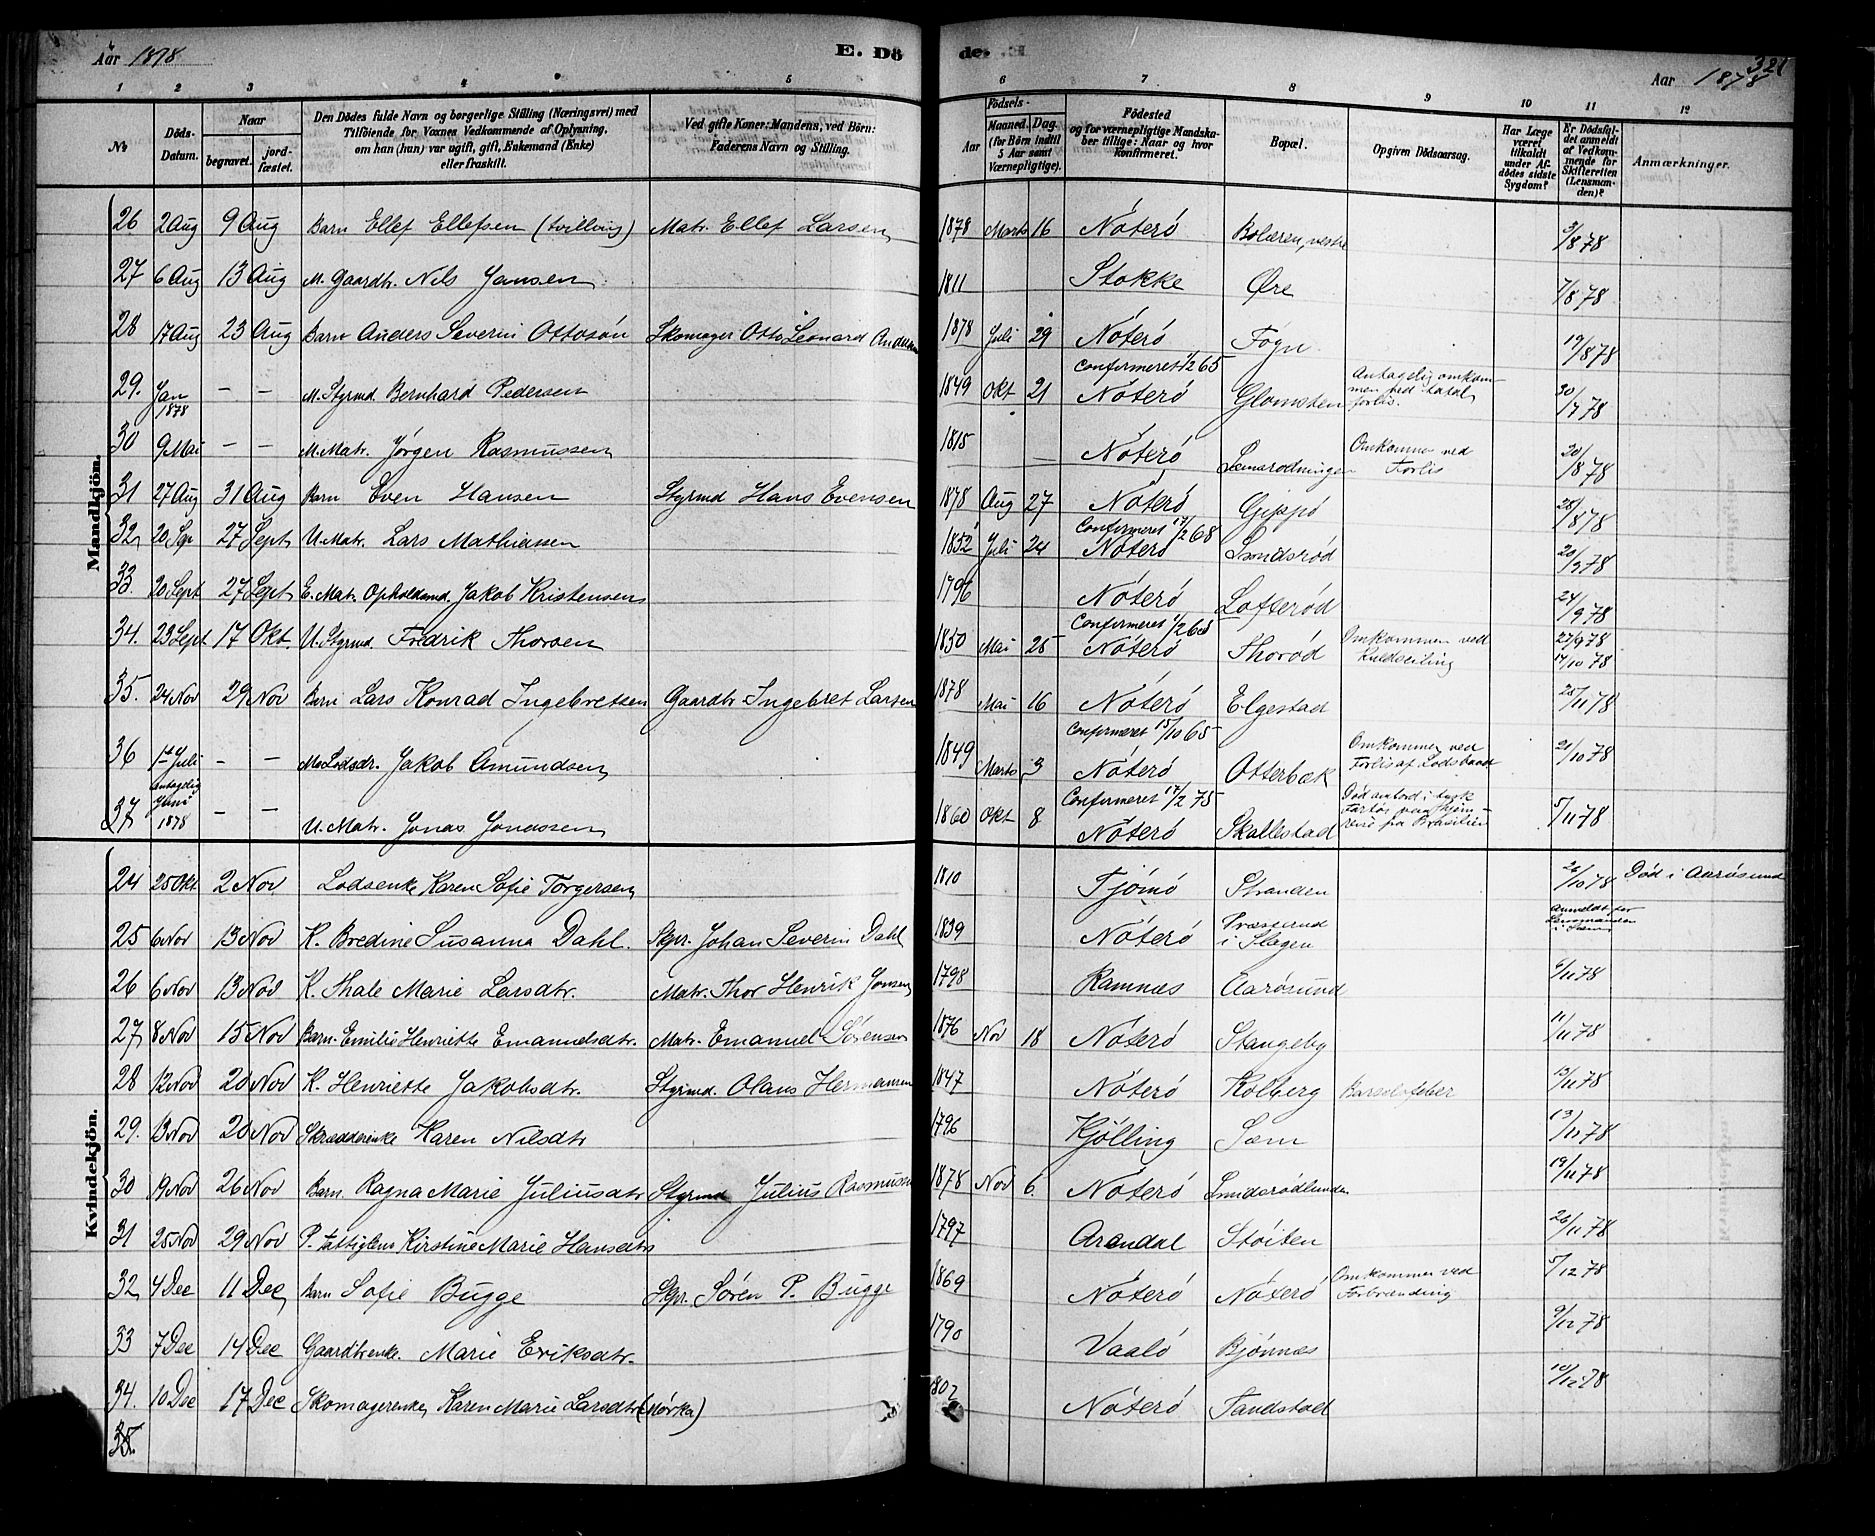 Aar 1878 E. Dö de. Aar 1878 321
1 2 3 4 5 6 7 8 9 10 11 12
No Döds-Datum. Naar begravet. jord-fæstet. Den Dödes fulde Navn og borgerlige Stilling (Næringsvei) med Tilföiende for Voxnes Vedkommende af Oplysning, om han (hun) var ugift, gift, Enkemand (Enke) eller fraskilt. Ved gifte Koner: Mandens, ved Börn: Faderens Navn og Stilling. Födsels- Aar Maaned. Dag. (for Börn indtil 5 Aar samt Værnepligtige). Födested og for værnepligtige Mandskaber tillige: Naar og hvor Konfirmeret. Bopæl. Opgiven Dödsaarsag. Har Læge været tilkaldt under Afdödes sidste Sygdom? Er Dödsfaldet anmeldt af Vedkommende for Skifteretten (Lensmanden)? Anmærkninger.
Mandkjön.
26 2 Aug 9 Aug Barn Ellef Ellefsen (tvilling) Matr. Ellef Larsen 1878 Marts 16 Nöterö Bolæren, vestre 3/8 78
27 6 Aug 13 Aug M. Gaardbr. Nils Jansen 1811 Stokke Øre 7/8 78
28 17 Aug 23 Aug Barn Anders Severin Ottosön Skomager Otto Leonard Andersen 1878 Juli 29 Nöterö Fögn 19/8 78
29. Jan 1878 – – M. Styrmd Bernhard Pedersen 1849 Okt 21 Confirmeret 1/2 65 Nöterö Glomsten Antagelig omkommen ved total forlis. 30/7 78
30 9 Mai – – M. Matr. Jörgen Rasmussen 1815 – Nöterö Omkommen ved Forlis 20/8 78
31 27 Aug 31 Aug Barn Even Hansen Styrmd Hans Evensen 1878 Aug 27 Nöterö Gipö 28/8 78
32 20 Sep 27 Sept U. Matr. Lars Mathiassen 1852 Juli 24 Confirmeret 17/2 68 Nöterö Smidsröd 20/9 78
33. 20 Sept 27 Sept E. Matr. Opholdsmd Jakob Kristensen 1796 Nöterö Lofteröd 24/9 78
34. 23 Sept 17 Okt. U. Styrmd. Fredrik Thorsen 1850 Mai 25 Confirmeret Nöterö Thoröd Omkommen ved Kuldseiling 27/9 78 17/10 78
35. 24 Nov 29 Nov Barn Lars Konrad Ingebretsen Gaardbr Ingebret Larsen 1878 Mai 16 Nöterö Elgestad 25/11 78
36 1st Juli – – M. Lodsdr. Jakob Amundsen 1849 Marts 3 Confirmeret 15/10 65 Nöterö Otterbæk Omkommen ved Forlis af Lodsbaad 21/10 78
37 antagelig Juni 1878 – – U. Matr. Jonas Jonassen 1860 Okt 8 Confirmeret 17/2 75 Nöterö Skallestad Död ombord i tysk Fartöi paa Hjemreise fra Brasilien 5/11 78
Kvindekjön.
24 25 Okt 2 Nov Lodsenke Karen Sofie Torgersen 1810 Tjömö Stranden 26/10 78 Död i Aarösund
25 6 Nov 13 Nov K. Bredine Susanna Dahl. Skpr. Johan Severin Dahl 1839 Nöterö Presterud i Slagen Anmeldt for Lensmanden i Sæm
26 6 Nov 13 Nov K. Thale Marie Larsdtr. Matr. Thor Henrik Jonsen 1798 Ramnæs Aarösund 6/11 78
27 8 Nov 15 Nov Barn. Emilie Henriette Emanuelsdtr. Matr. Emanuel Sörensen 1876 Nov 18 Nöterö Stangeby 11/11 78
28 12 Nov 20 Nov K. Henriette Jakobsdtr. Styrmd. Olaus Hermansen 1847 Nöterö Kolberg Barselsfeber 13/11 78
29. 13 Nov 20 Nov Skrædderenke Karen Nilsdtr 1796 Kjölling Sem 13/11 78
30 19 Nov 26 Nov Barn Ragna Marie Juliusdtr Styrmd Julius Rasmussen 1878 Nov 6 Nöterö Smidsrödlunden 19/11 78
31 25 Nov 29 Nov P. fattiglem Kirstine Marie Hansdtr 1797 Arendal Stöiten 26/11 78
32 4 Dec 11 Dec Barn Sofie Bugge Skpr. Sören P. Bugge 1869 Nöterö Nöterö Omkommen ved Forbrænding 5/12 78
33 7 Dec 14 Dec Gaardbrenke. Marie Eriksdtr. 1790 Vaalö Bjönnæs 9/12 78
34. 10 Dec 17 Dec Skomagerenke, Karen Marie Larsdtr (Mörka) 1802 Nöterö Tandstad 10/12 78
35.